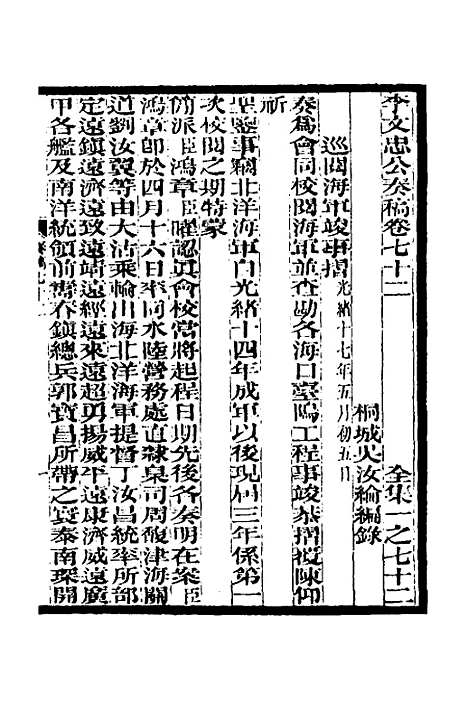 李文忠公奏稿卷七十二 全集一之七十二
桐城吳汝綸編錄
巡閱海軍竣事摺 光緒十七年五月初五日
奏爲會同校閱海軍並查勘各海口臺隖工程事竣恭摺覆陳仰
祈
聖鑒事竊北洋海軍自光緒十四年成軍以後現屆三年係第一
次校閱之期特蒙
簡派臣鴻章臣曜認眞會校當將起程日期先後各奏明在案臣
鴻章卽於四月十六日率同水陸營務處直隸臬司周馥津海關
道劉汝翼等由大沽乘輪出海北洋海軍提督丁汝昌統率所部
定遠鎭遠濟遠致遠靖遠經遠來遠超勇揚威平遠康濟威遠廣
甲各艦及南洋統領前壽春鎭總兵郭寶昌所帶之寰泰南琛開